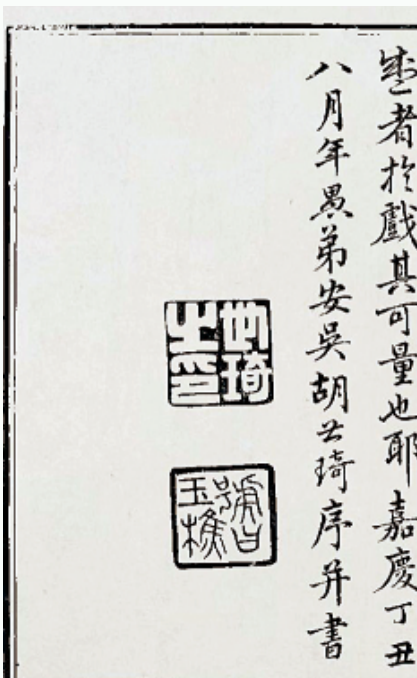 盛者扵戲其可量也耶嘉慶丁丑
八月年愚弟安吳胡世琦序并書
世琦之印
號曰玉樵